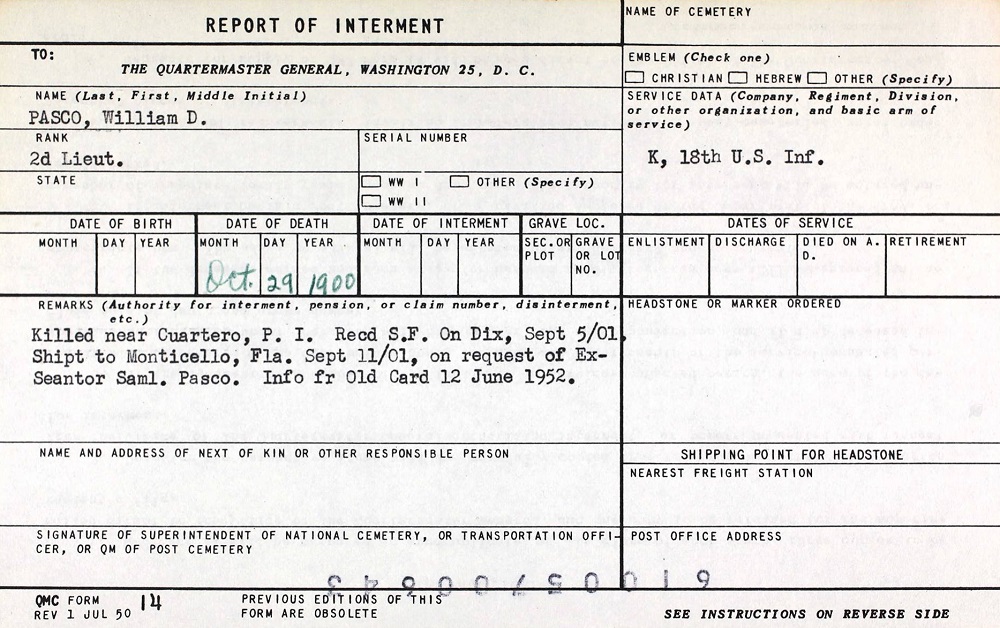 REPORT OF INTERMENT
NAME OF CEMETERY
TO:
THE QUARTERMASTER GENERAL, WASHINGTON 25, D. C.
EMBLEM (Check one)
CHRISTIAN HEBREW OTHER (Specify)
NAME (Last, First, Middle Initial)
PASCO, William D.
SERVICE DATA (Company, Regiment, Division,
or other organization, and basic arm of
service)
K, 18th U.S. Inf.
RANK
2d Lieut.
SERIAL NUMBER
STATE
WW I OTHER (Specify)
WW II
DATE OF BIRTH DATE OF DEATH DATE OF INTERMENT GRAVE LOC. DATES OF SERVICE
MONTH DAY YEAR MONTH DAY YEAR MONTH DAY YEAR SEC.OR PLOT GRAVE OR LOT NO. ENLISTMENT DISCHARGE DIED ON A. D. RETIREMENT
Oct. 29 1900
REMARKS (Authority for interment, pension, or claim number, disinterment,
etc.)
Killed near Cuartero, P. I. Recd S.F. On Dix, Sept 5/01,
Shipt to Monticello, Fla. Sept 11/01, on request of Ex-
Seantor Saml. Pasco. Info fr Old Card 12 June 1952.
HEADSTONE OR MARKER ORDERED
NAME AND ADDRESS OF NEXT OF KIN OR OTHER RESPONSIBLE PERSON
SHIPPING POINT FOR HEADSTONE
NEAREST FREIGHT STATION
SIGNATURE OF SUPERINTENDENT OF NATIONAL CEMETERY, OR TRANSPORTATION OFFI-
CER, OR QM OF POST CEMETERY
POST OFFICE ADDRESS
QMC FORM 14
REV 1 JUL 50
PREVIOUS EDITIONS OF THIS
FORM ARE OBSOLETE
SEE INSTRUCTIONS ON REVERSE SIDE